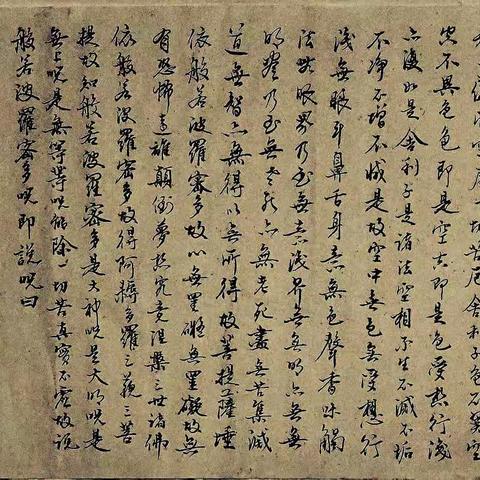 空度一切苦厄舍利子色不異空
空不異色色即是空空即是色受想行識
亦復如是舍利子是諸法空相不生不滅不垢
不淨不增不減是故空中無色無受想行
識無眼耳鼻舌身意無色聲香味觸
法無眼界乃至無意識界無無明亦無無
明盡乃至無老死亦無老死盡無苦集滅
道無智亦無得以無所得故菩提薩埵
依般若波羅蜜多故心無罣礙無罣礙故無
有恐怖遠離顛倒夢想究竟涅槃三世諸佛
依般若波羅蜜多故得阿耨多羅三藐三菩
提故知般若波羅蜜多是大神呪是大明呪是
無上呪是無等等呪能除一切苦真實不虛故說
般若波羅蜜多呪即說呪曰